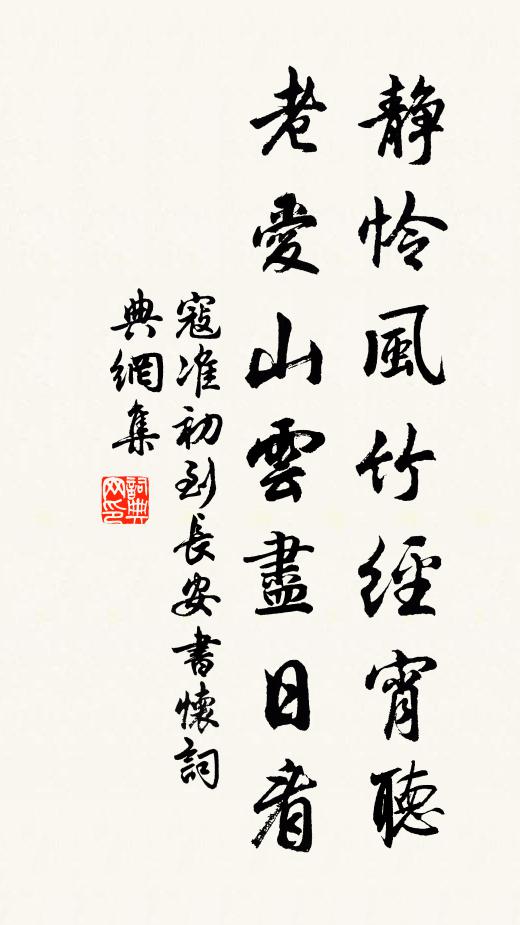 靜怜風竹經宵聽
老愛山雲盡日看
寇准初到長安書懷詞
典網集
詞典
网印